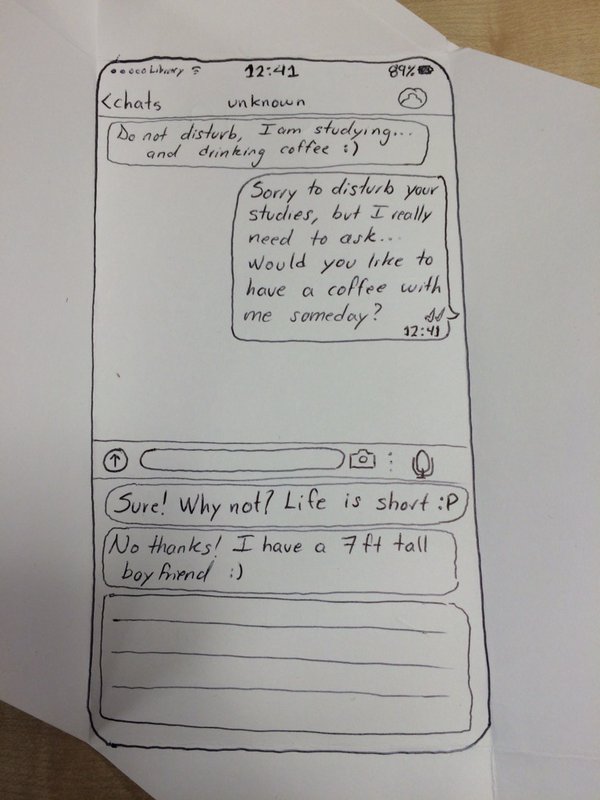 Library 12:41 89%
<chats unknown
Do not disturb, I am studying...
and drinking coffee :)
Sorry to disturb your
studies, but I really
need to ask...
Would you like to
have a coffee with
me someday?
12:41
Sure! Why not? Life is short :P
No thanks! I have a 7ft tall
boyfriend :)